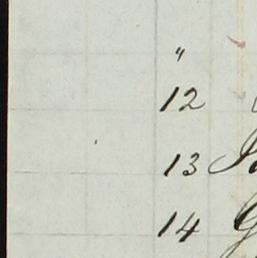 "
12
13
14